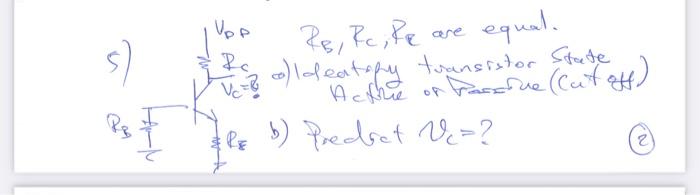 5)
VDD
RB, RC, RE are equal.
RC
a) Identify transistor State
VC=?
Active or Passive (Cut off)
RB
RE
b) Predict VC=?
2